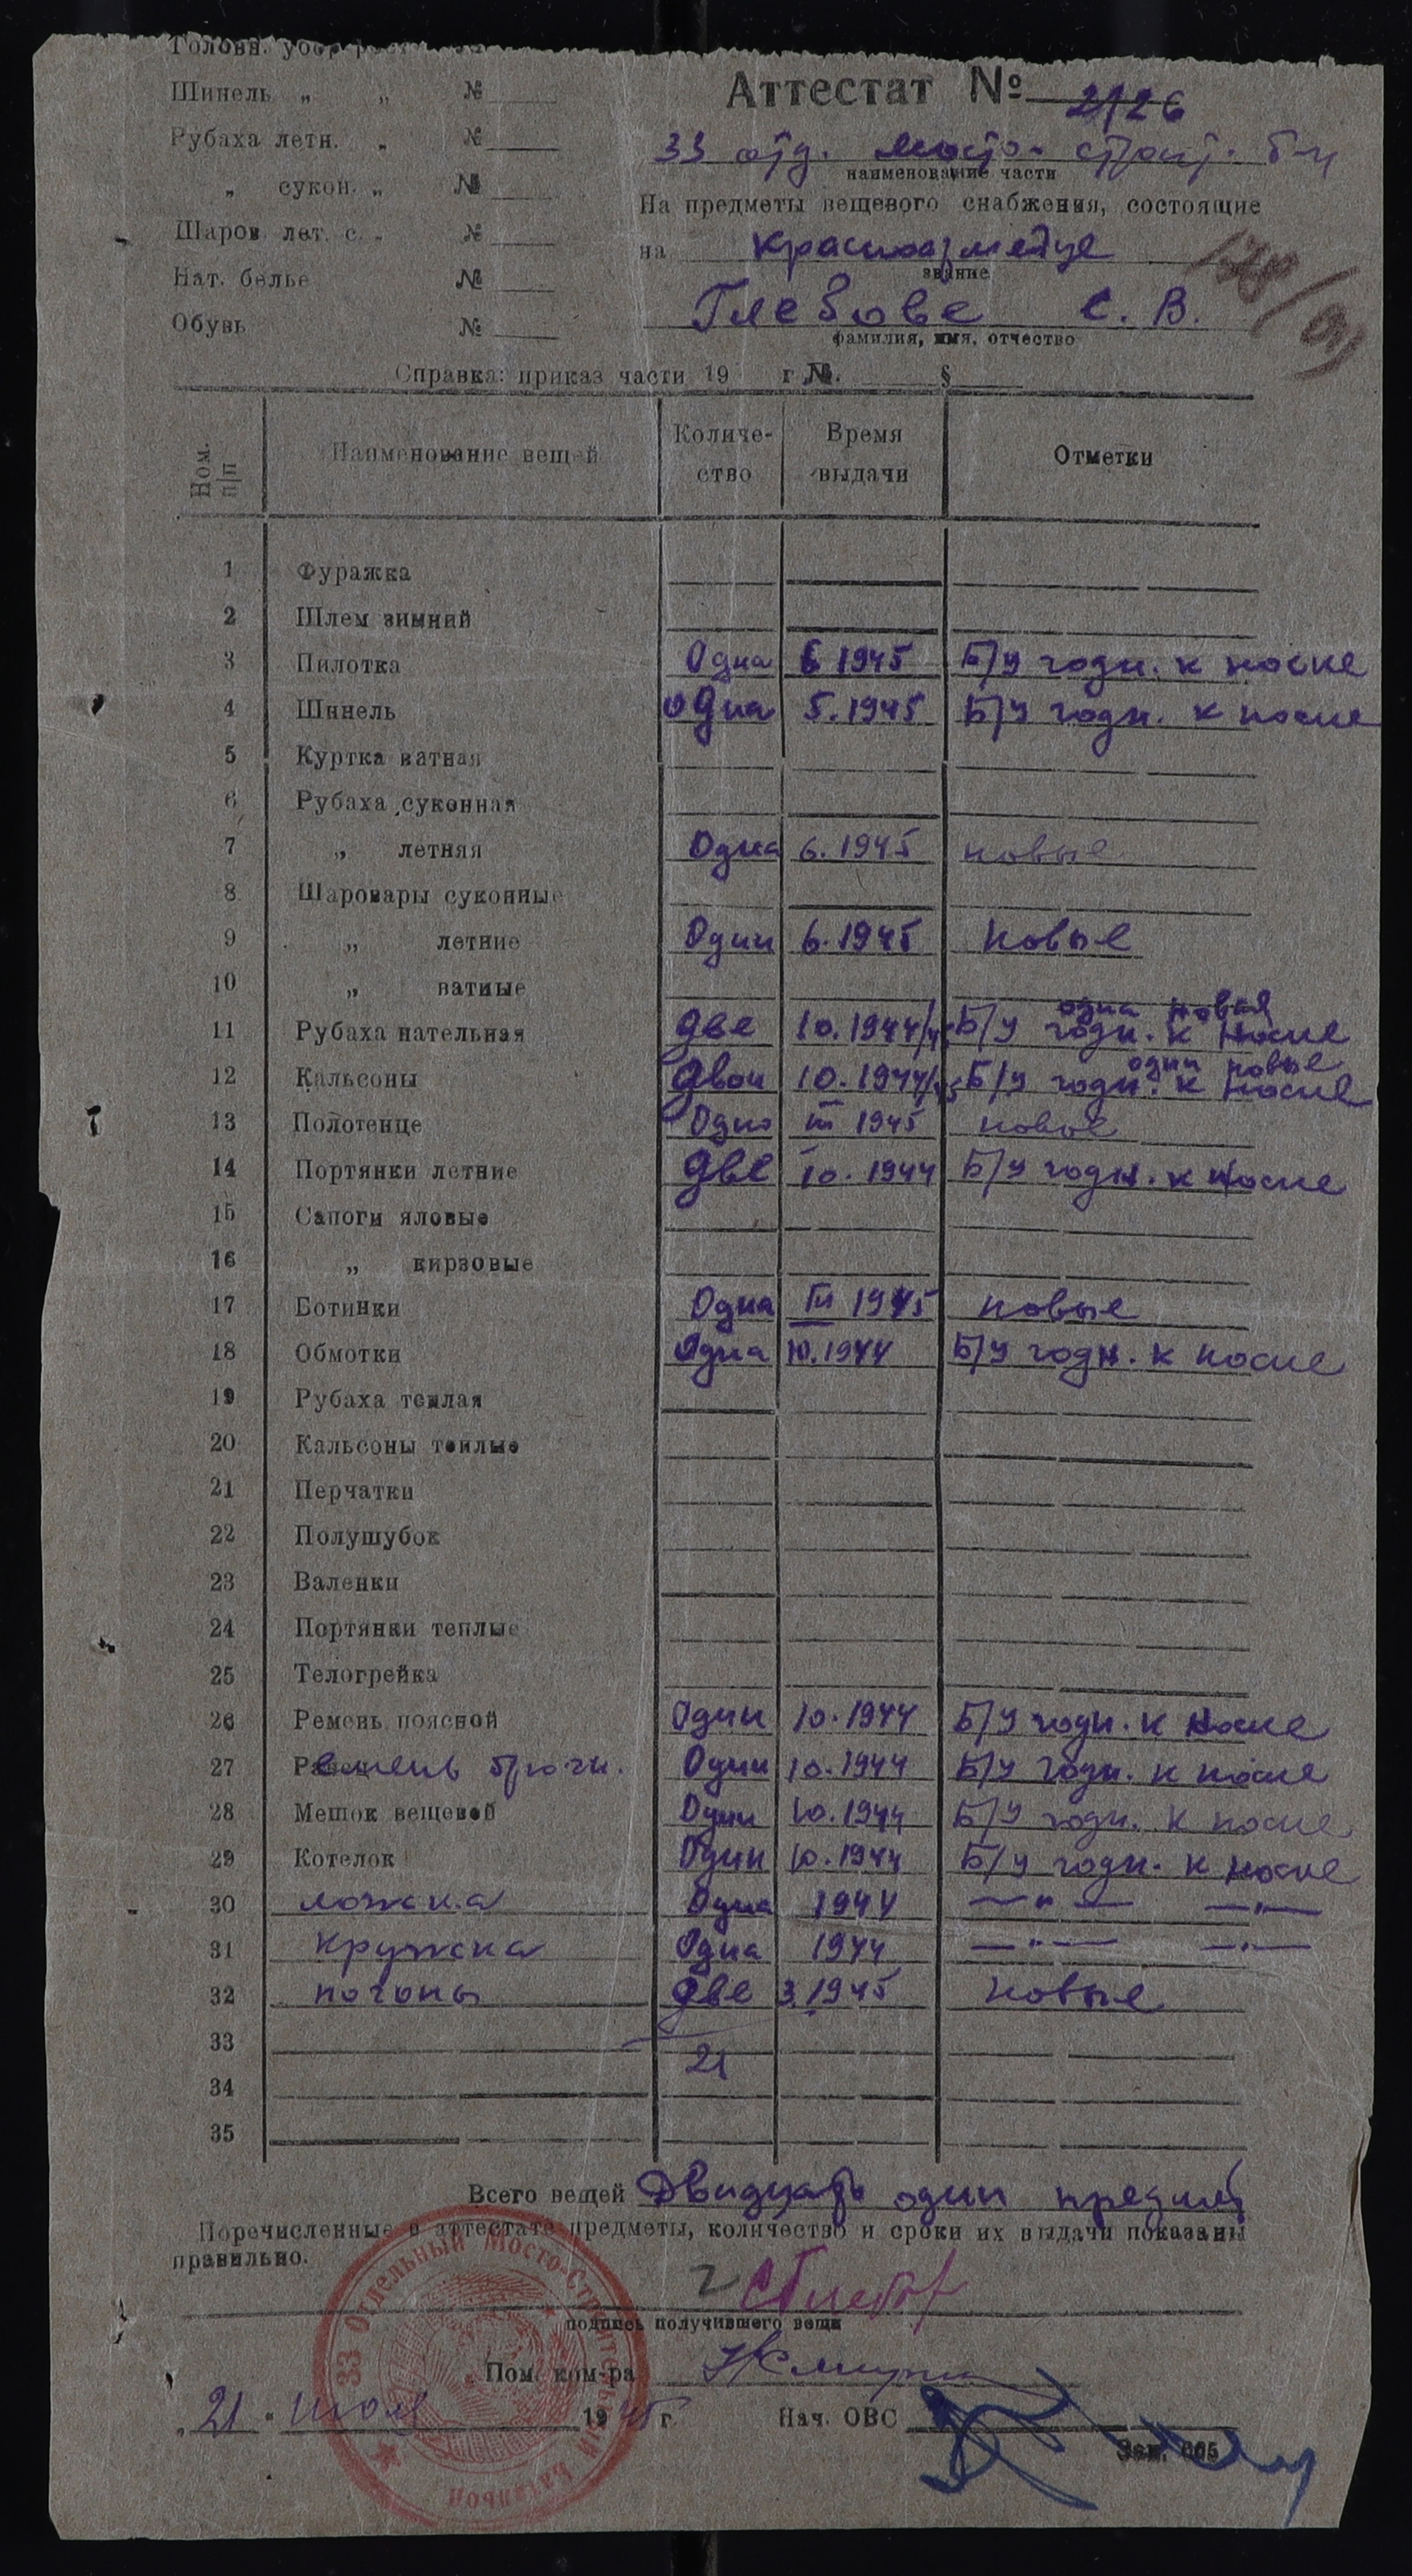 Головн. убор
Шинель „ „ №
Рубаха летн. „ №
„ сукон. „ №
Шаров. лет. с. „ №
Нат. белье №
Обувь №
Аттестат № 2126
33 отд. мосто-строит. б-н
наименование части
На предметы вещевого снабжения, состоящие
на красноармейце
звание
Глебове С. В.
фамилия, имя, отчество
Справка: приказ части 19 г №. §
Ном. п/п Наименование вещей Количе- ство Время выдачи Отметки
1 Фуражка
2 Шлем зимний
3 Пилотка Одна 6 1945 Б/у годн. к носке
4 Шинель одна 5.1945 Б/у годн. к носке
5 Куртка ватная
6 Рубаха суконная
7 „ летняя Одна 6.1945 новые
8 Шаровары суконные
9 „ летние Один 6.1945 Новые
10 „ ватные
одна новая
11 Рубаха нательная две 10.1944/45 Б/у годн. к носке
одни новые
12 Кальсоны двои 10.1944/45 Б/у годн. к носке
13 Полотенце Одно III 1945 новое
14 Портянки летние две 10.1944 Б/у годн. к носке
15 Сапоги яловые
16 „ кирзовые
17 Ботинки Одна III 1945 новые
18 Обмотки Одна 10.1944 Б/у годн. к носке
19 Рубаха теплая
20 Кальсоны теплые
21 Перчатки
22 Полушубок
23 Валенки
24 Портянки теплые
25 Телогрейка
26 Ремень поясной Один 10.1944 Б/у годн. к носке
27 Ремень брючн. Один 10.1944 Б/у годн. к носке
28 Мешок вещевой Один 10.1944 Б/у годн. к носке
29 Котелок Один 10.1944 Б/у годн. к носке
30 ложка Одна 1944 —„— —„—
31 кружка Одна 1944 —„— —„—
32 погоны две 3.1945 новые
33
21
34
35
Всего вещей Двадцать один предмет
Перечисленные в аттестате предметы, количество и сроки их выдачи показаны
правильно.
СГлебов
подпись получившего вещи
Пом. ком-ра
„21“ июля 1945 г.
Нач. ОВС
Зак. 665
33 Отдельный Мосто-Строительный Батальон